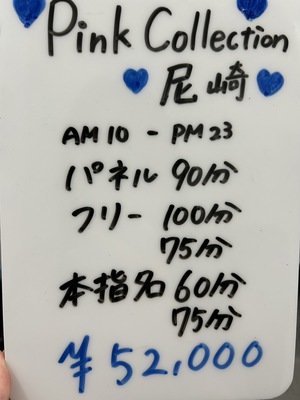 Pink Collection
尼崎
AM10 - PM23
パネル 90分
フリー 100分
75分
本指名 60分
75分
¥52,000